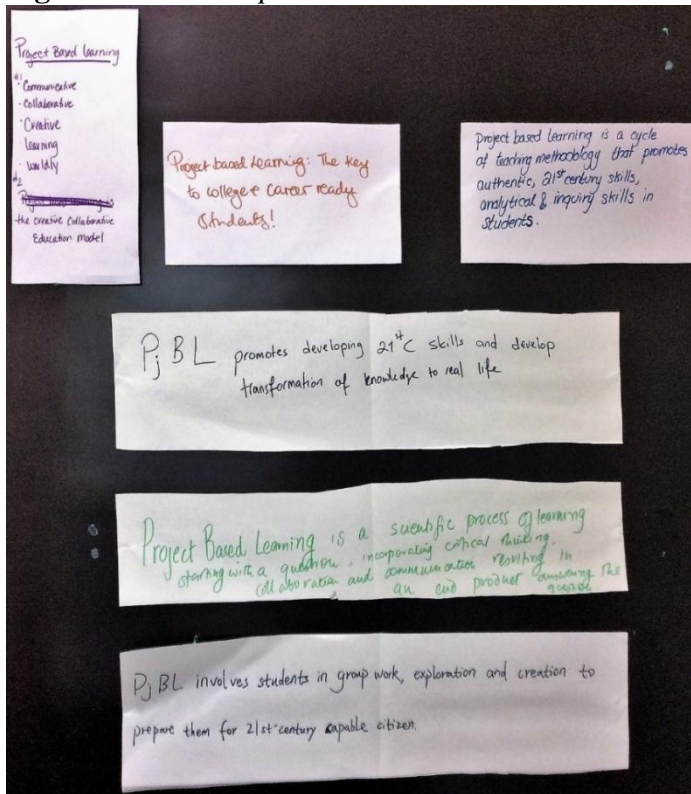 Project Based Learning
#1
· Communicative
· Collaborative
· Creative
· Learning
· Worldly
#2
the Creative Collaborative
Education Model
Project based Learning: The key
to college & career ready
students!
project based learning is a cycle
of teaching methodology that promotes
authentic, 21st century skills,
analytical & inquiry skills in
students.
PjBL promotes developing 21st C skills and develop
transformation of knowledge to real life
Project Based Learning is a scientific process of learning
starting with a question, incorporating critical thinking,
collaboration and communication resulting in
an end product answering the
question
PjBL involves students in group work, exploration and creation to
prepare them for 21st-century capable citizen.